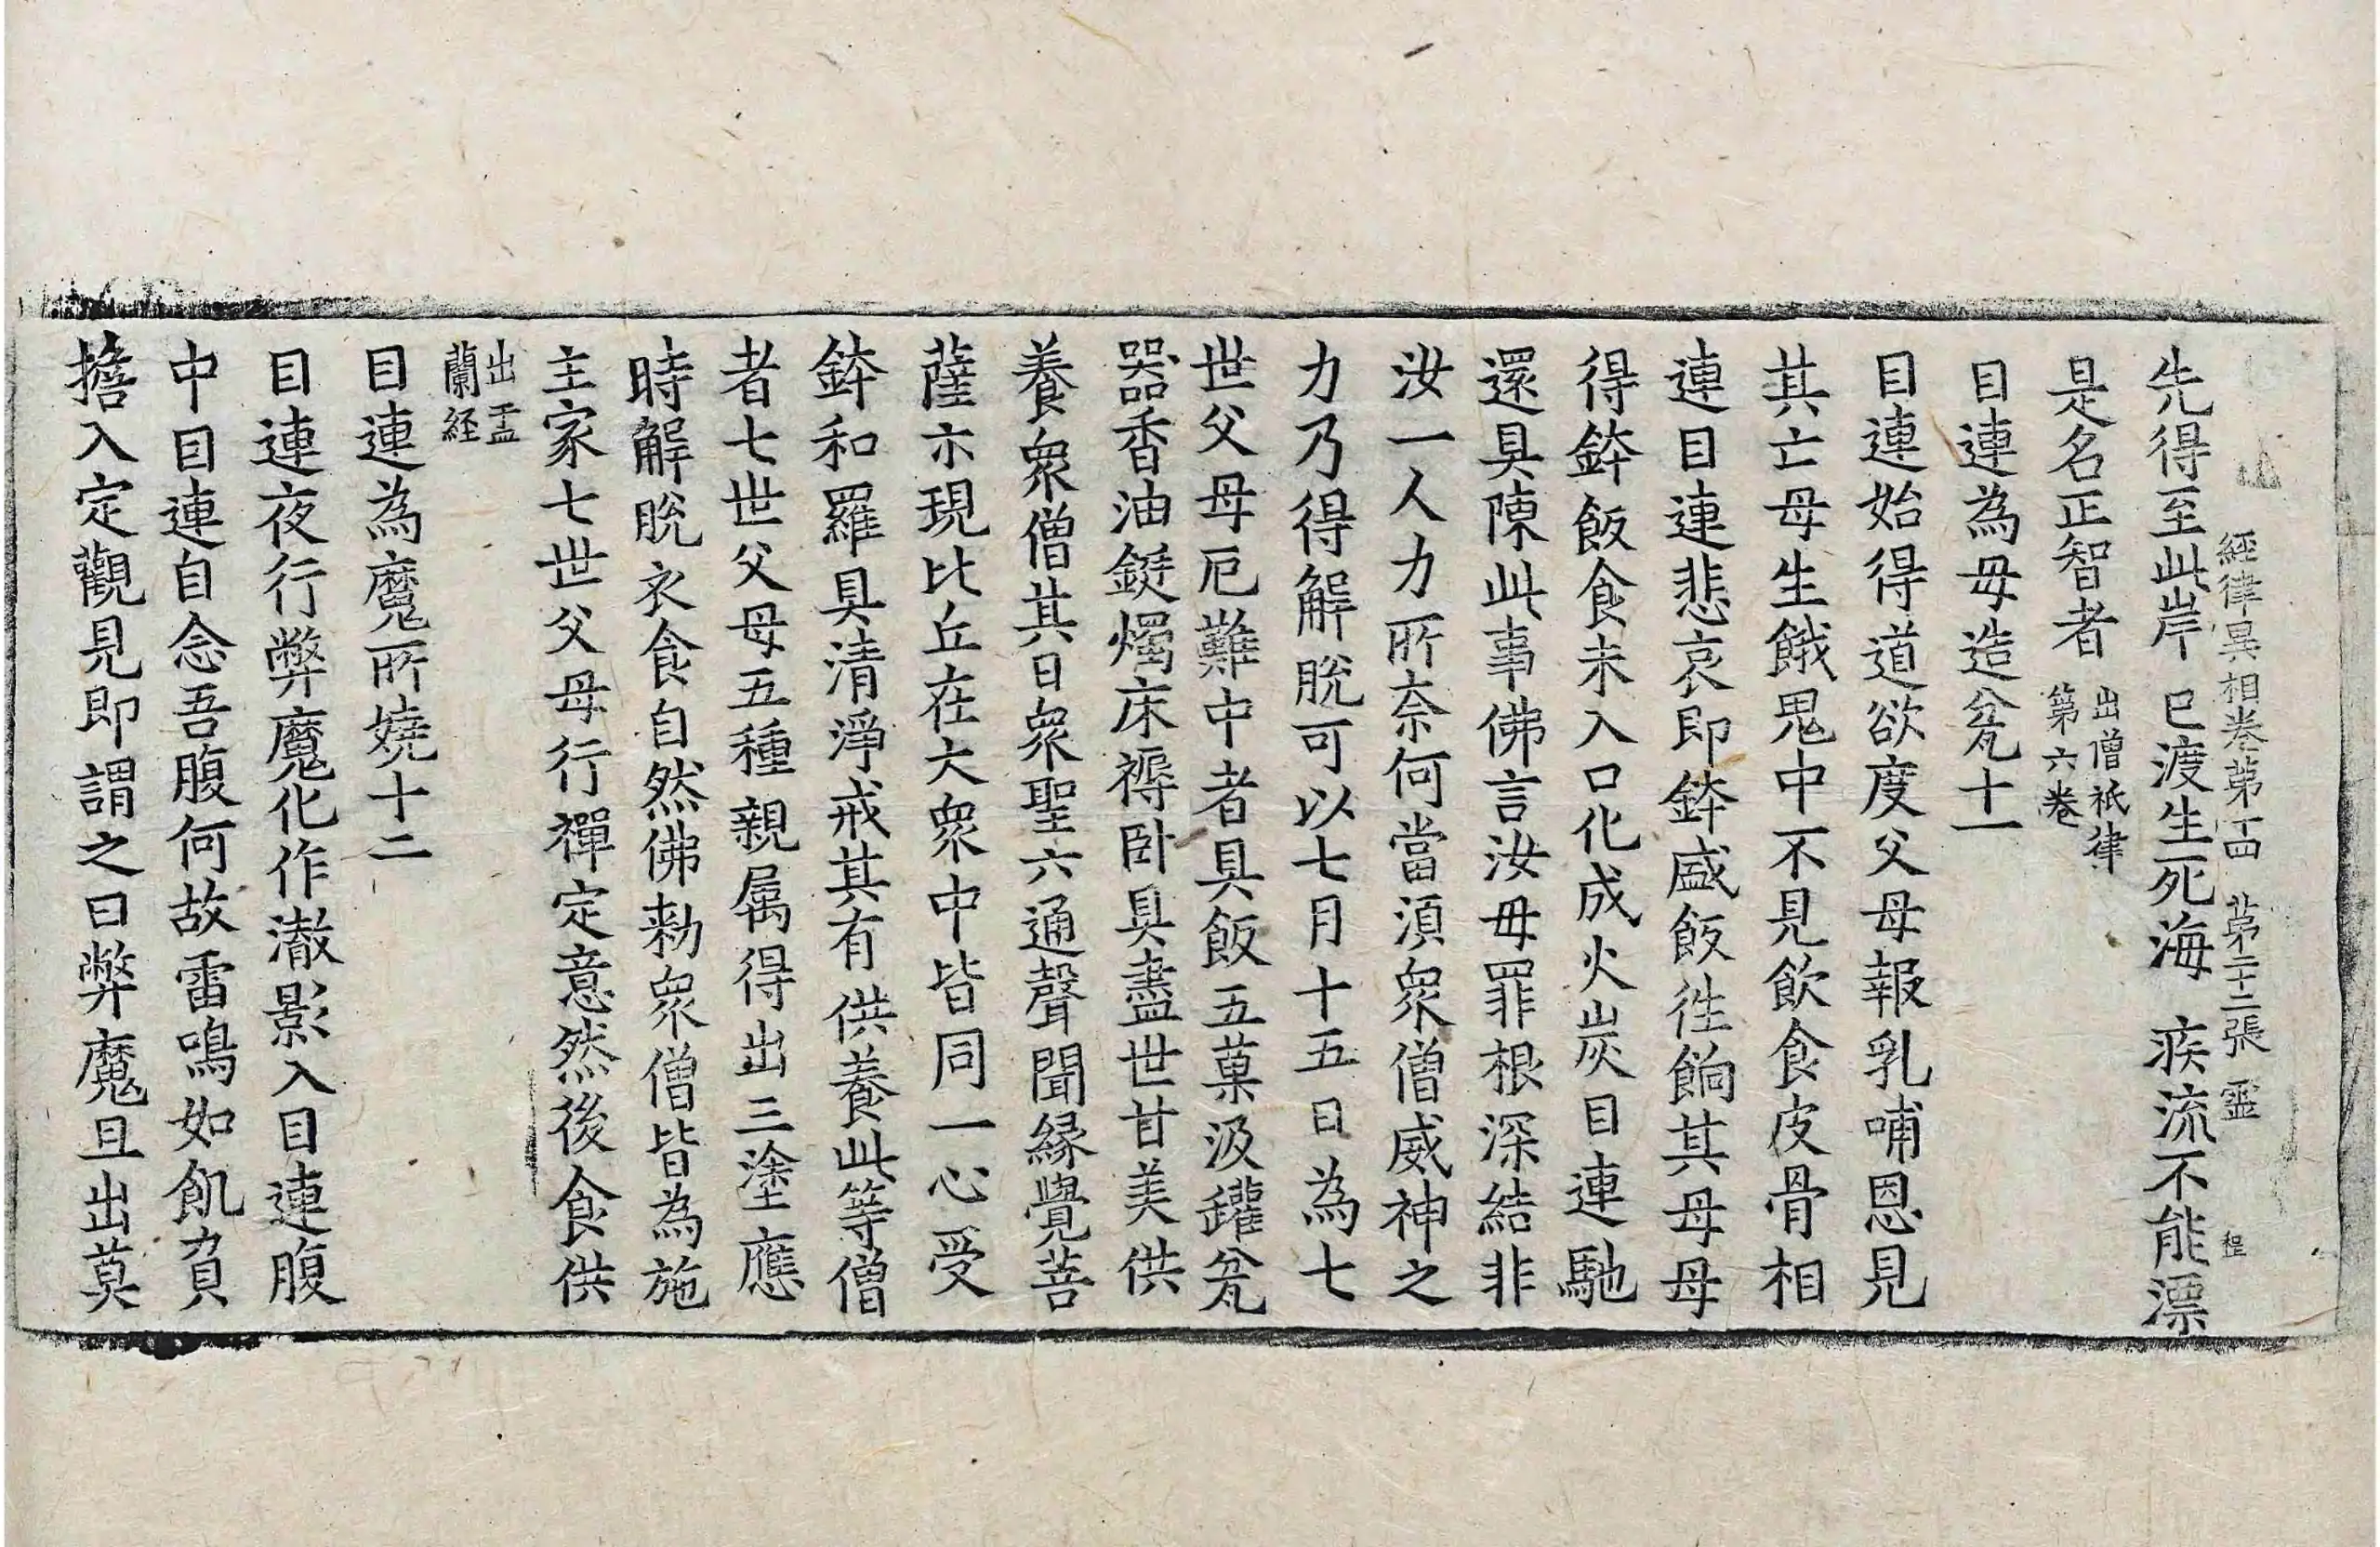 經律異相卷第十四　第二十二張　靈　程
先得至此岸　已渡生死海　疾流不能漂
是名正智者　出僧祇律第六卷
目連為母造瓫十一
目連始得道欲度父母報乳哺恩見
其亡母生餓鬼中不見飲食皮骨相
連目連悲哀即鉢盛飯往餉其母母
得鉢飯食未入口化成火炭目連馳
還具陳此事佛言汝母罪根深結非
汝一人力所奈何當須衆僧威神之
力乃得解脫可以七月十五日為七
世父母厄難中者具飯五菓汲鑵瓫
器香油鋌燭床褥卧具盡世甘美供
養衆僧其日衆聖六通聲聞緣覺菩
薩示現比丘在大衆中皆同一心受
鉢和羅具清淨戒其有供養此等僧
者七世父母五種親属得出三塗應
時解脫衣食自然佛勑衆僧皆為施
主家七世父母行禪定意然後食供
出盂蘭経
目連為魔所嬈十二
目連夜行弊魔化作澈影入目連腹
中目連自念吾腹何故雷鳴如飢負
擔入定觀見即謂之曰弊魔且出莫